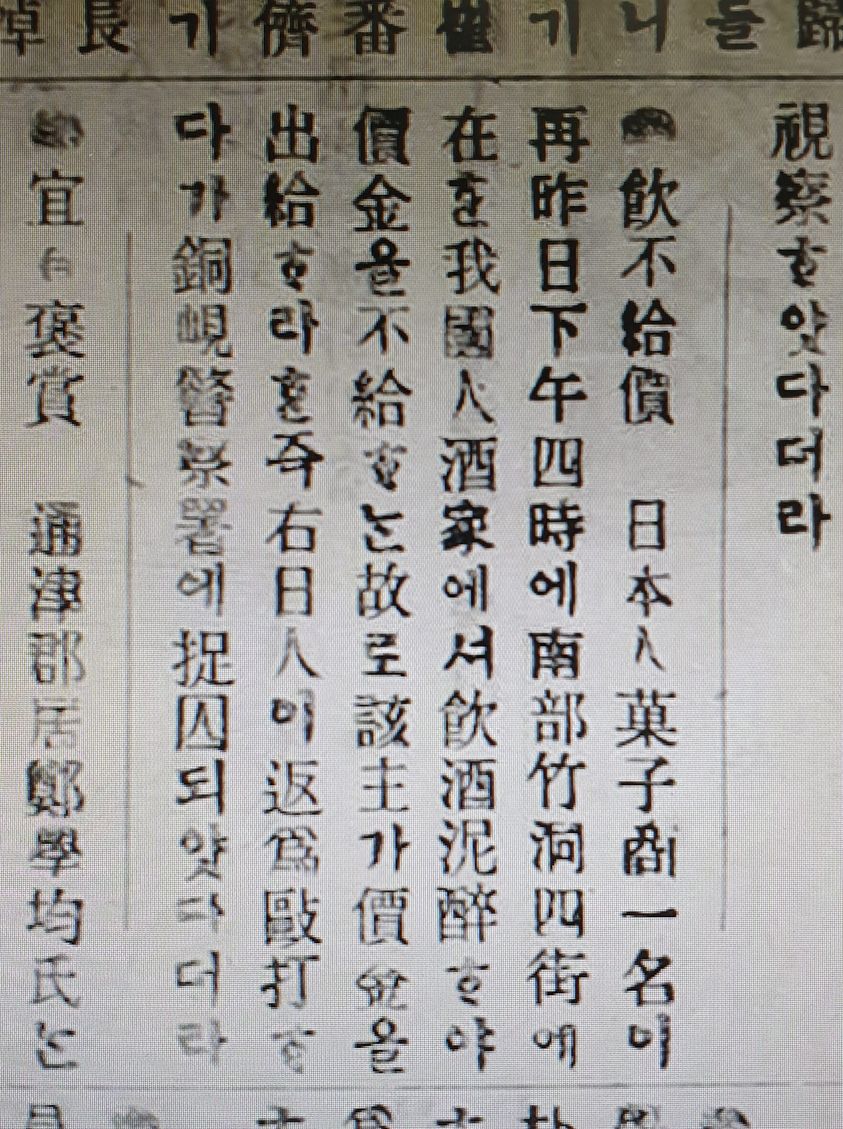 歸
들
니
기
番
儕
기
長
視察ᄒᆞ얏다더라
●飮不給價 日本人菓子商一名이
再昨日下午四時에南部竹洞四街에
在ᄒᆞᆫ我國人酒家에셔飮酒泥醉ᄒᆞ야
價金을不給ᄒᆞᄂᆞᆫ故로該主가價金을
出給ᄒᆞ라ᄒᆞᆫ즉右日人이返爲毆打ᄒᆞ
다가銅峴警察署에捉囚되얏다더라
宜 褒賞 通津郡居鄭學均氏ᄂᆞᆫ